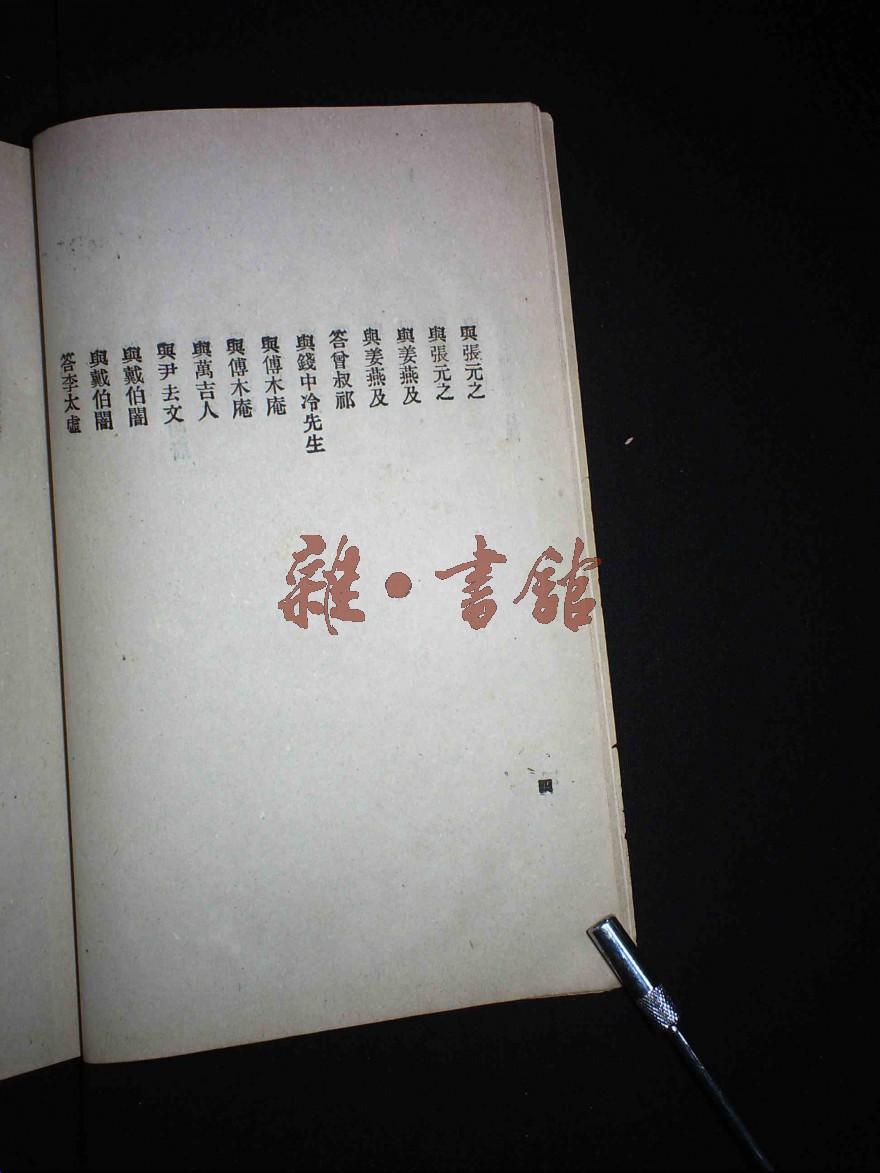 與張元之
與張元之
與姜燕及
與姜燕及
答曾叔祁
與錢中冷先生
與傅木庵
與傅木庵
與萬吉人
與尹去文
與戴伯闇
與戴伯闇
答李太虛
四
雜·書館